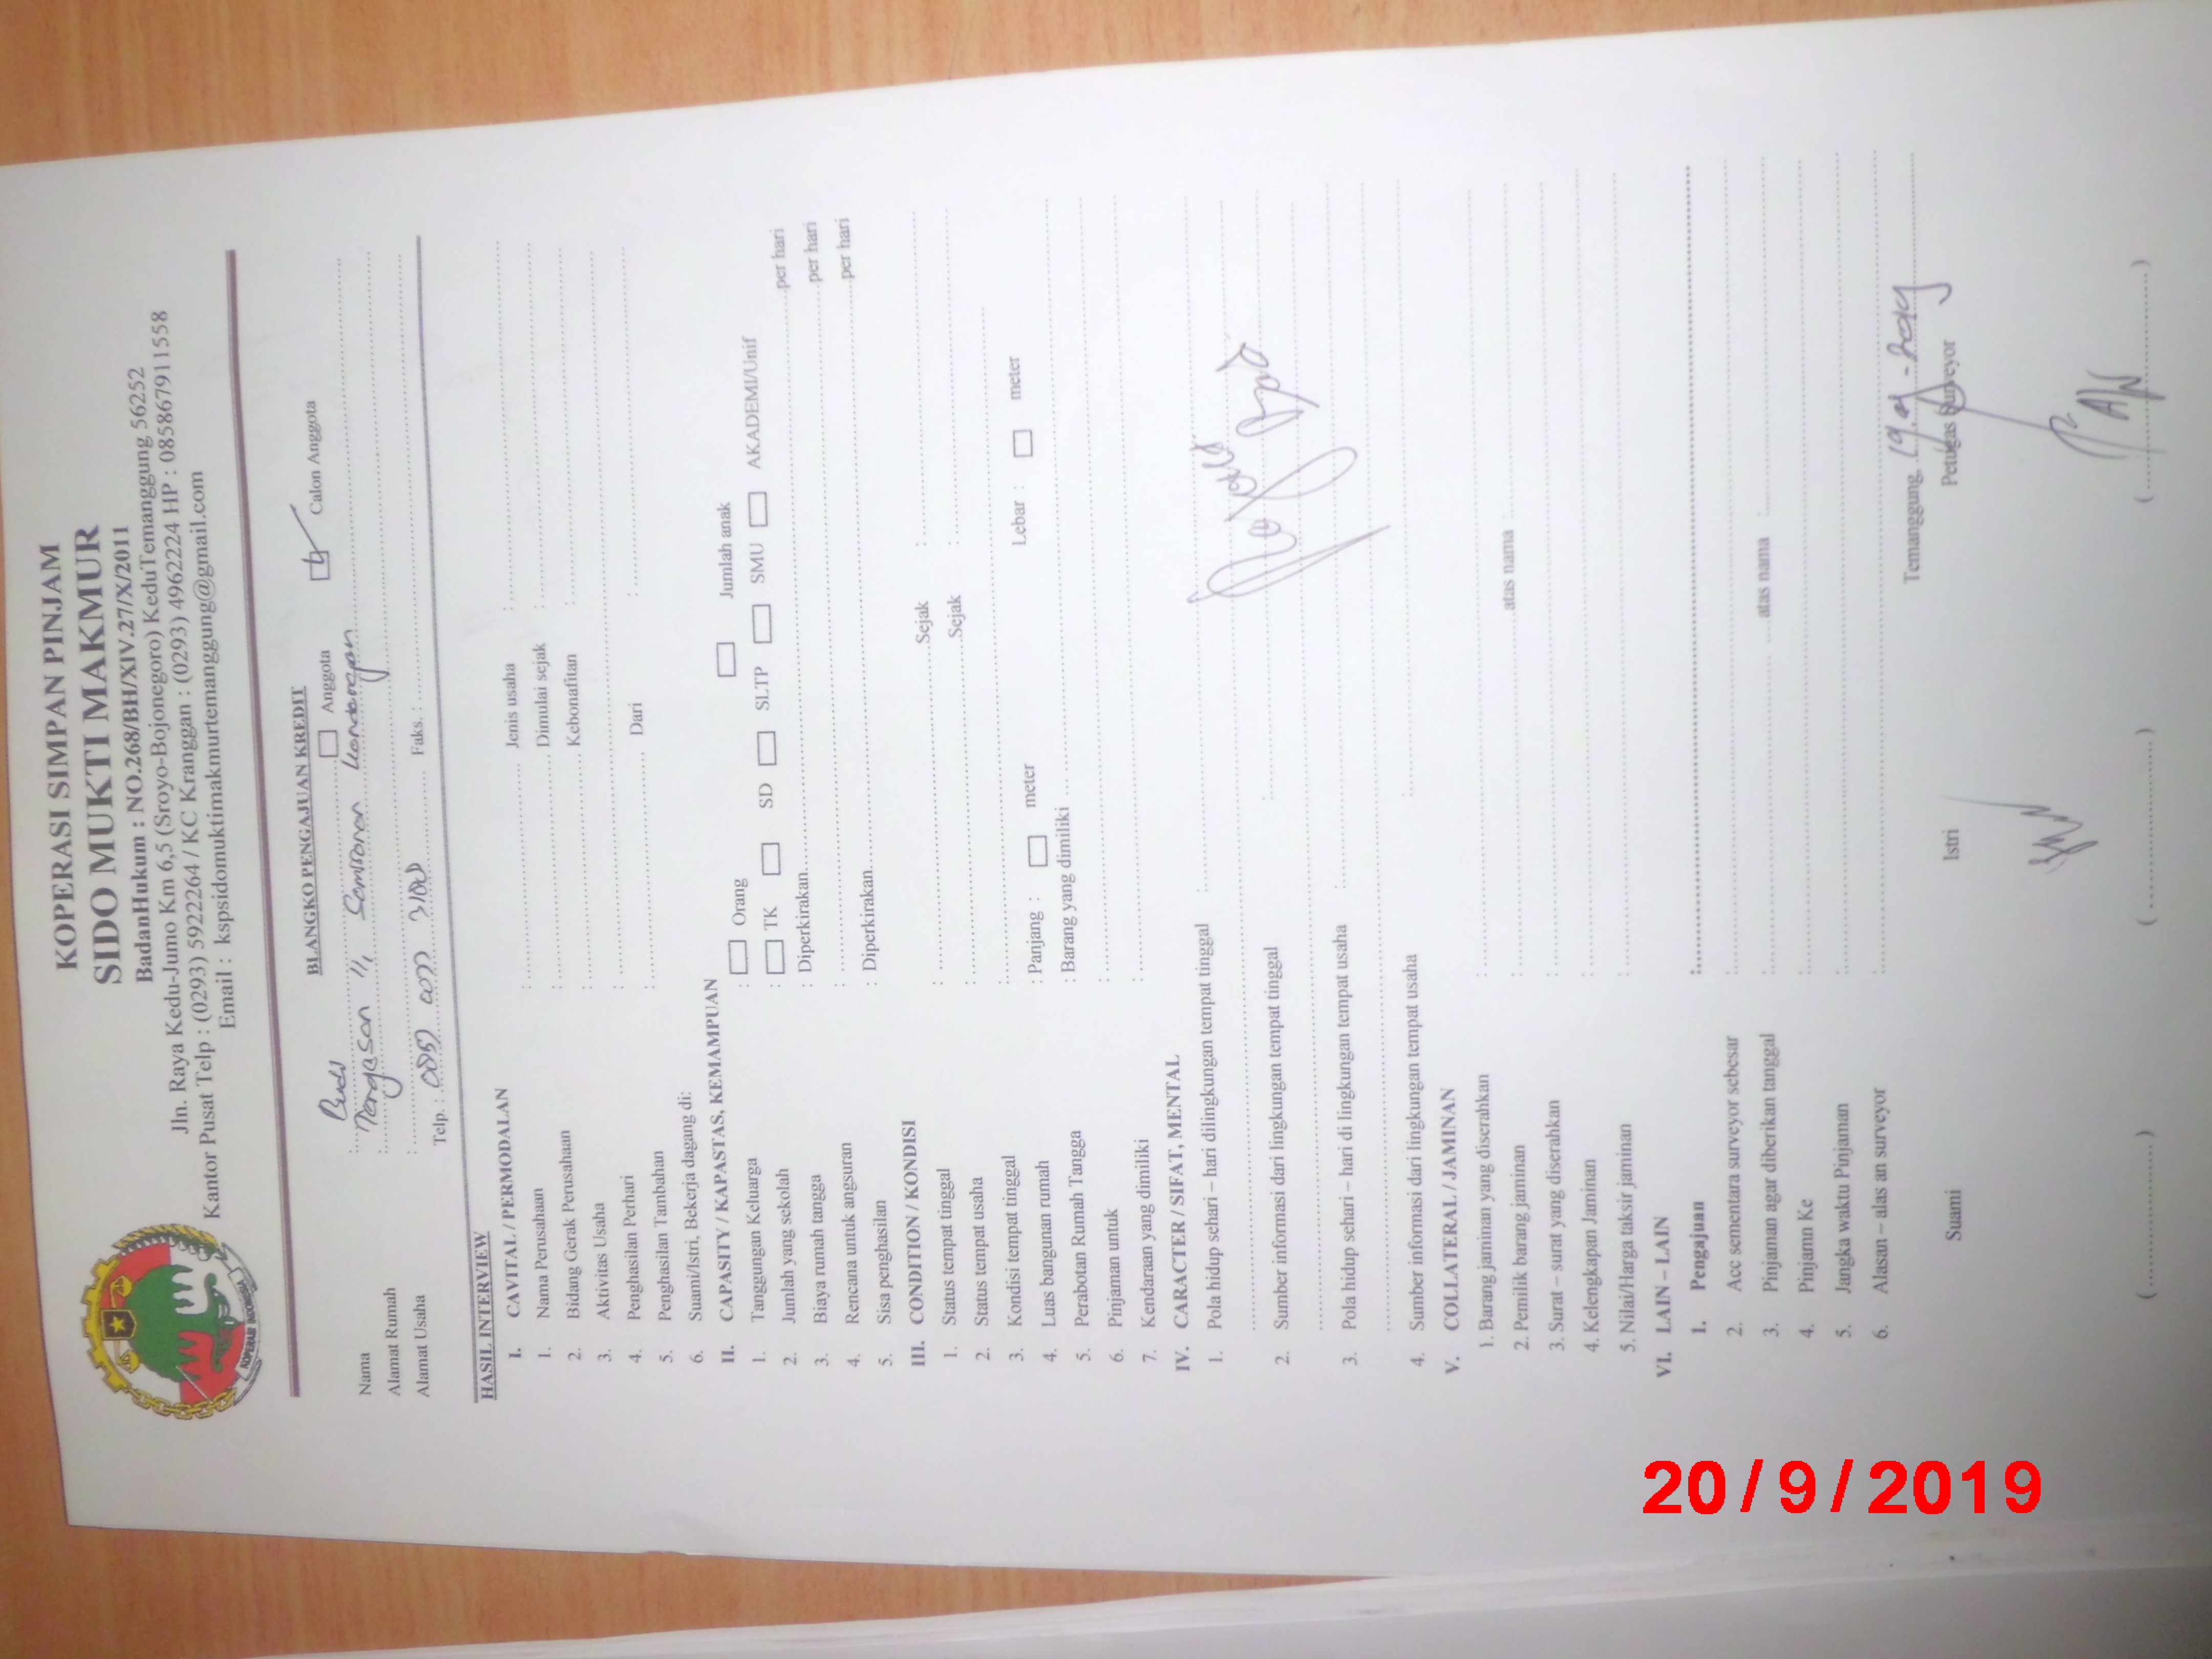 KOPERASI SIMPAN PINJAM
SIDO MUKTI MAKMUR
BadanHukum : NO.268/BH/XIV.27/X/2011
Jln. Raya Kedu-Jumo Km 6,5 (Sroyo-Bojonegoro) KeduTemanggung 56252
Kantor Pusat Telp : (0293) 5922264 / KC Kranggan : (0293) 4962224 HP : 085867911558
Email : kspsidomuktimakmurtemanggung@gmail.com
KOPERASI INDONESIA
BLANGKO PENGAJUAN KREDIT
Nama : Budi Anggota Calon Anggota
Alamat Rumah :
Alamat Usaha :
Telp. : Faks. :
HASIL INTERVIEW
I. CAVITAL / PERMODALAN
1. Nama Perusahaan : Jenis usaha :
2. Bidang Gerak Perusahaan : Dimulai sejak :
3. Aktivitas Usaha : Kebonafitan :
4. Penghasilan Perhari :
5. Penghasilan Tambahan : Dari :
6. Suami/Istri, Bekerja dagang di:
II. CAPASITY / KAPASTAS, KEMAMPUAN
1. Tanggungan Keluarga : Orang Jumlah anak
2. Jumlah yang sekolah : TK SD SLTP SMU AKADEMI/Unif
3. Biaya rumah tangga : Diperkirakan per hari
4. Rencana untuk angsuran : per hari
5. Sisa penghasilan : Diperkirakan per hari
III. CONDITION / KONDISI
1. Status tempat tinggal : Sejak :
2. Status tempat usaha : Sejak :
3. Kondisi tempat tinggal :
4. Luas bangunan rumah : Panjang : meter Lebar : meter
5. Perabotan Rumah Tangga : Barang yang dimiliki
6. Pinjaman untuk :
7. Kendaraan yang dimiliki :
IV. CARACTER / SIFAT, MENTAL
1. Pola hidup sehari – hari dilingkungan tempat tinggal :
2. Sumber informasi dari lingkungan tempat tinggal :
3. Pola hidup sehari – hari di lingkungan tempat usaha :
4. Sumber informasi dari lingkungan tempat usaha :
V. COLLATERAL / JAMINAN
1. Barang jaminan yang diserahkan :
2. Pemilik barang jaminan : atas nama :
3. Surat – surat yang diserahkan :
4. Kelengkapan Jaminan :
5. Nilai/Harga taksir jaminan :
VI. LAIN – LAIN
1. Pengajuan :
2. Acc sementara surveyor sebesar :
3. Pinjaman agar diberikan tanggal : atas nama :
4. Pinjamn Ke :
5. Jangka waktu Pinjaman :
6. Alasan – alas an surveyor :
Temanggung
Suami Istri Petugas Surveyor
( ) ( ) ( )
20/9/2019